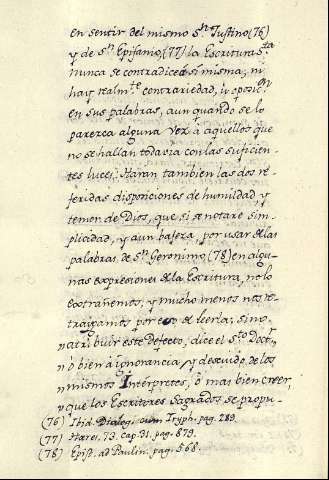 en sentir del mismo Sn. Justino (76)
y de Sn. Epifanio, (77) la Escritura Sta.
nunca se contradice á sí misma; ni
hay realmte. contrariedad, u oposicon.
en sus palabras, aun quando se lo
parezca alguna vez á aquellos que
no se hallan todavia con las suficien-
tes luces. Haran tambien las dos re-
feridas disposiciones de humildad y
temor de Dios, que si se notare sim-
plicidad, y aun bajeza, por usar de las
palabras de Sn. Geronimo (78) en algu-
nas expresiones de la Escritura, no lo
extrañemos, y mucho menos nos re-
traygamos por eso de leerla; sino
atribuir este defecto, dice el Sto. Doctr.
ò bien á ignorancia y descuido de los
mismos Interpretes, ò mas bien creer
que los Escritores Sagrados se propu-
(76) Ibid. Dialog. cum Tryph. pag. 289.
(77) Hares. 73. cap. 31. pag. 879.
(78) Epist. ad Paulin. pag. 568.